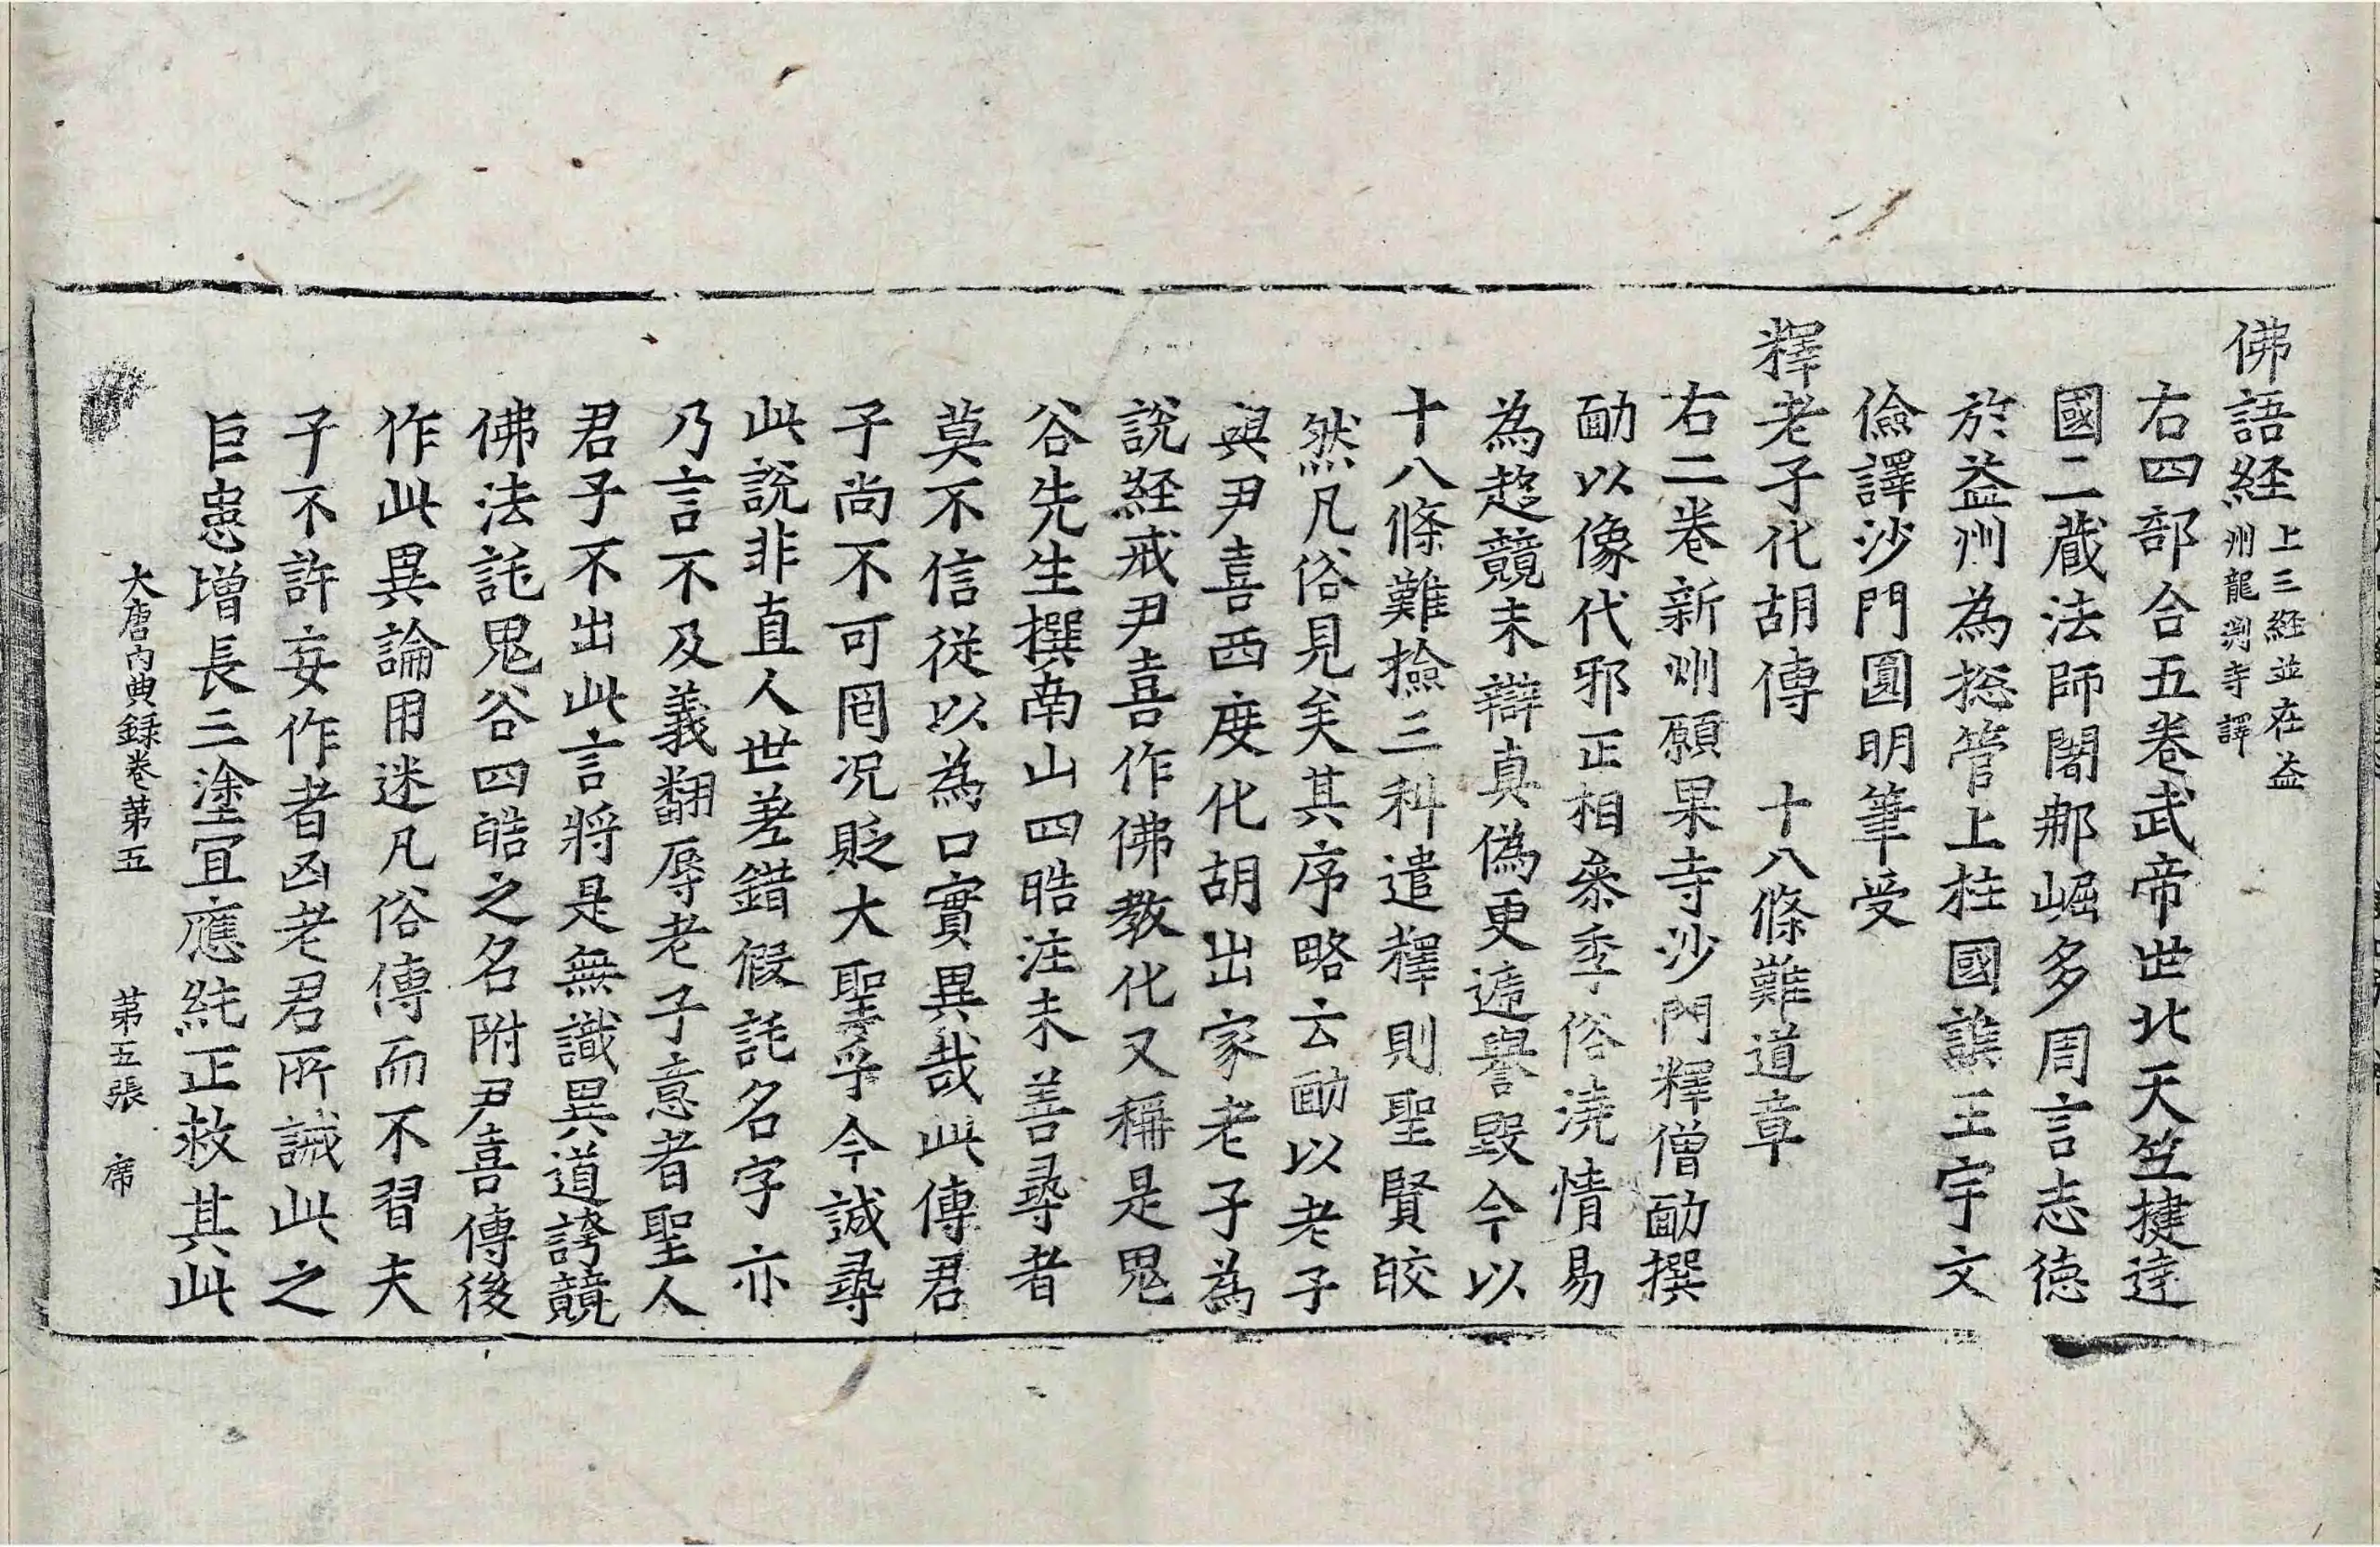 佛語經上三経並在益州龍淵寺譯
右四部合五巻武帝世北天竺揵達
國二蔵法師闍那崛多周言志徳
於益州為揔管上柱國譙王宇文
儉譯沙門圓明筆受
釋老子化胡傳　十八條難道章
右二巻新州願果寺沙門釋僧勔撰
勔以像代邪正相叅季俗澆情易
為趍競未辯真偽更遞譽毀今以
十八條難撿三科遣釋則聖賢皎
然凡俗見矣其序略云勔以老子
與尹喜西度化胡出家老子為
說経戒尹喜作佛教化又稱是鬼
谷先生撰南山四皓注未善尋者
莫不信従以為口實異哉此傳君
子尚不可罔况貶大聖乎今誠尋
此說非直人世差錯假託名字亦
乃言不及義翻辱老子意者聖人
君子不出此言將是無識異道誇競
佛法託鬼谷四皓之名附尹喜傳後
作此異論用迷凡俗傳而不習夫
子不許妄作者凶老君所誡此之
巨患增長三塗宜應紏正救其此
大唐内典録巻第五　第五張　席